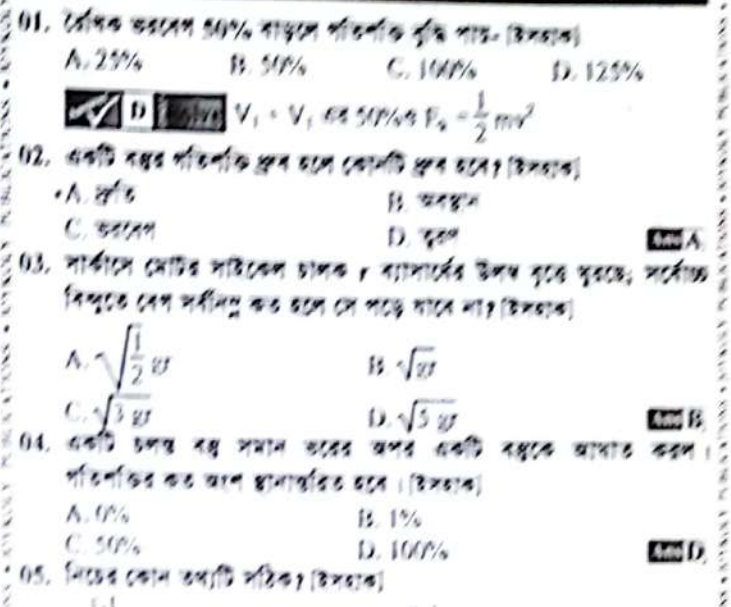 01. রৈখিক ভরবেগ 50% বাড়লে গতিশক্তি বৃদ্ধি পায়- [ইসহাক]
A. 25% B. 50% C. 100% D. 125%
D Solve V₁ + V₁ এর 50%
02. একটি বস্তুর গতিশক্তি ধ্রুব হলে কোনটি ধ্রুব হবে? [ইসহাক]
A. দ্রুতি B. অবস্থান
C. ভরবেগ D. ত্বরণ Ans A
03. সার্কাসে মোটর সাইকেল চালক r ব্যাসার্ধের উলম্ব বৃত্তে ঘুরছে; সর্বোচ্চ
বিন্দুতে বেগ সর্বনিম্ন কত হলে সে পড়ে যাবে না? [ইসহাক]
A. √(1/2 gr) B. √gr
C. √3 gr D. √5 gr Ans B
04. একটি চলন্ত বস্তু সমান ভরের অপর একটি বস্তুকে আঘাত করল।
গতিশক্তির কত অংশ স্থানান্তরিত হবে। [ইসহাক]
A. 0% B. 1%
C. 50% D. 100% Ans D
05. নিচের কোন তথ্যটি সঠিক? [ইসহাক]